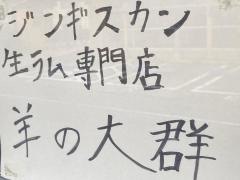 ジンギスカン
生ラム専門店
羊の大群